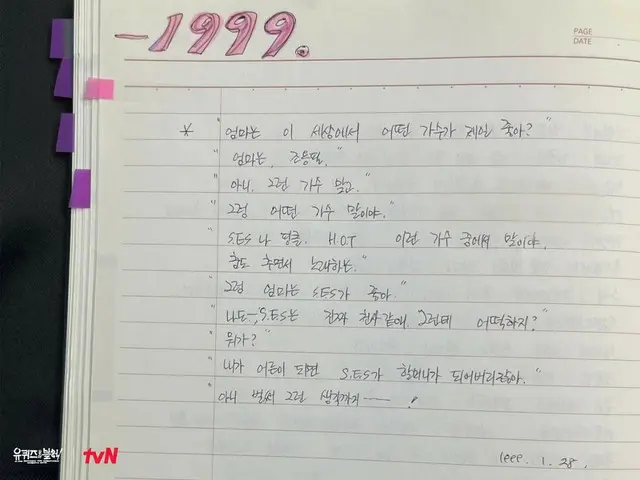 -1999.
PAGE
DATE
* "엄마는 이 세상에서 어떤 가수가 제일 좋아?"
"엄마는, 조용필."
"아니, 그런 가수 말고."
"그럼 어떤 가수 말이야."
"S.E.S 나 핑클. H.O.T 이런 가수 중에서 말이야.
춤도 추면서 노래하는."
"그럼 엄마는 S.E.S가 좋아."
"나도~, S.E.S는 진짜 천사같애. 그런데 어떡하지?"
"뭐가?"
"내가 어른이 되면 S.E.S가 할머니가 되어버리잖아."
아니 벌써 그런 생각까지 —— !
1999. 1. 28.
유퀴즈온더블럭
tvN